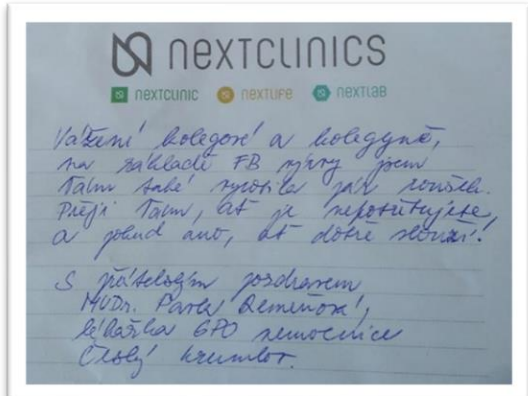 NEXTCLINICS
NEXTCLINIC NEXTLIFE NEXTLAB
Vážení kolegové a kolegyně,
na základě FB výzvy jsem
Vám také vyrobila pár roušek.
Přeji Vám, ať je nepotřebujete,
a pokud ano, ať dobře slouží!
S přátelským pozdravem
MUDr. Pavla
lékařka GPO nemocnice
Český Krumlov.